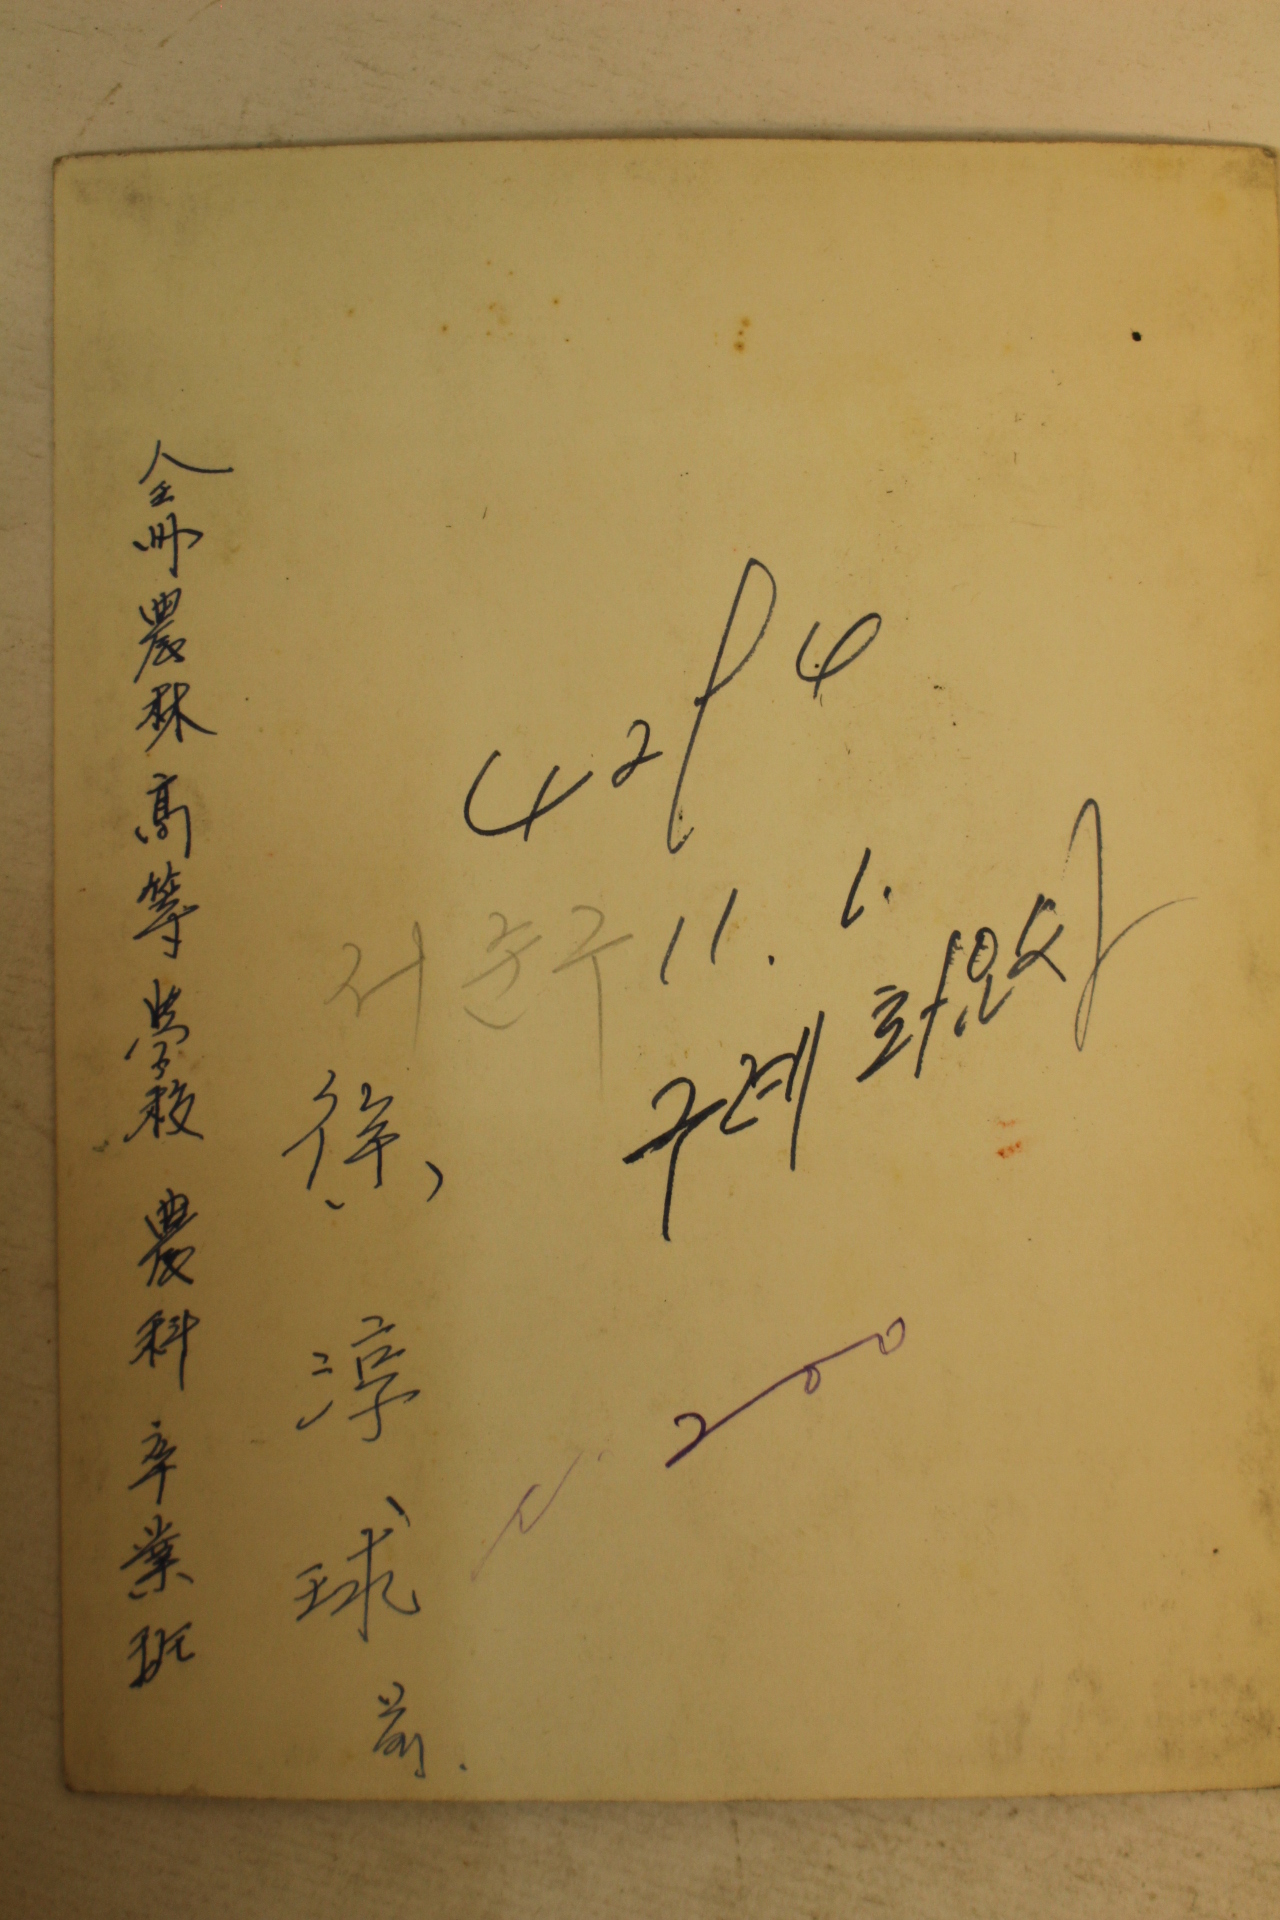 4294
11. 1.
구례 화엄사
서순구
徐淳球 前.
全州農林高等學校 農科 卒業班
200